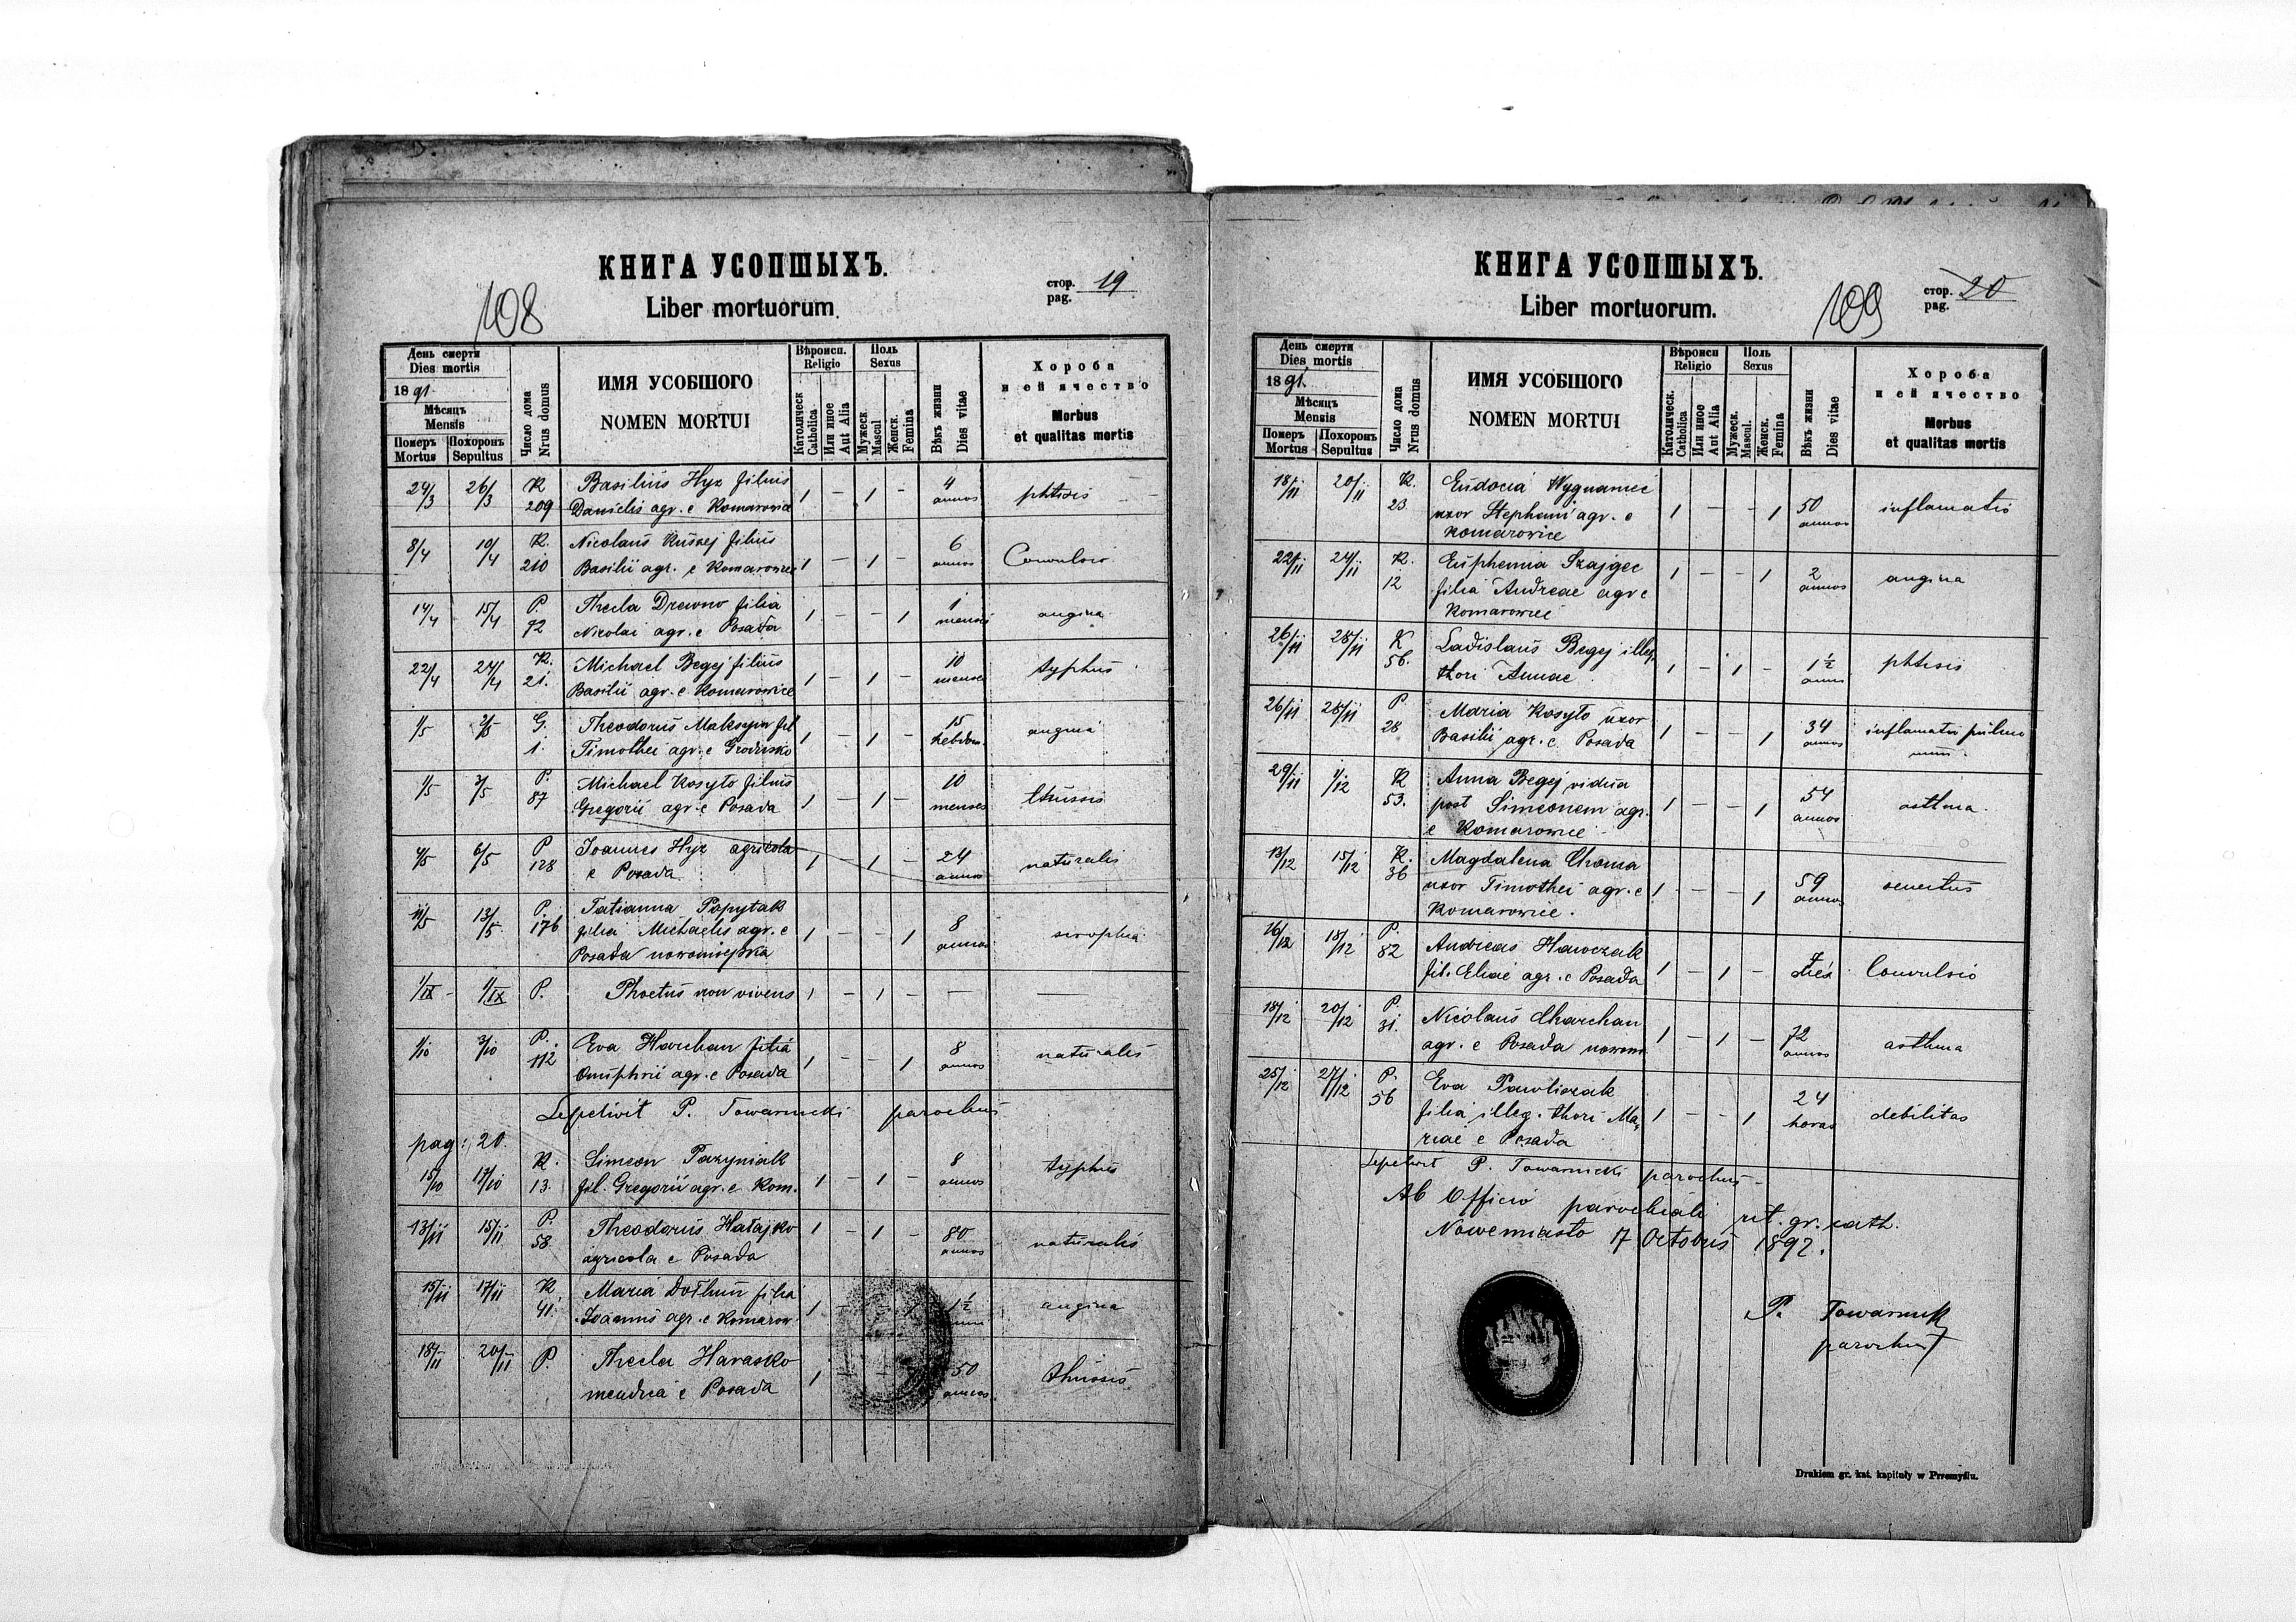 КНИГА УСОПШЫХЪ.
Liber mortuorum.
108
стор. pag. 19
День смерти
Dies mortis
1891.
Мѣсяцъ
Mensis
Померъ Mortus
Похоронъ Sepultus
Число дома
Nrus domus
ИМЯ УСОБШОГО
NOMEN MORTUI
Вѣроисп.
Religio
Католическ
Catholica
Или иное
Aut Alia
Полъ
Sexus
Мужеск
Mascul
Женск.
Femina
Вѣкъ жизни
Dies vitae
Хороба
и ей ячество
Morbus
et qualitas mortis
24/3 26/3 K 209 Basilius Hyz filius
Danielis agr. e Komarowice 1 – 1 – 4 annos phtisis
8/4 10/4 K. 210 Nicolaus Kuszej filius
Basilii agr. e Komarowice 1 – 1 – 6 annos Convulsio
14/4 15/4 P. 92 Thecla Drewno filia
Nicolai agr. e Posada 1 – – 1 1 mensis angina
22/4 24/4 K. 21. Michael Begej filius
Basilii agr. e Komarowice 1 – 1 – 10 menses typhus
1/5 2/5 G. 1. Theodorus Maksym fil
Timothei agr. e Grodzisko 1 – 1 – 15 hebdom. angina
1/5 3/5 P. 87 Michael Kosyto filius
Gregorii agr. e Posada 1 – 1 – 10 menses thussis
4/5 6/5 P 128 Joannes Hyz agricola
e Posada 1 1 – 24 annos naturalis
11/5 13/5 P. 176 Tatianna Popytak
filia Michaelis agr. e
Posada nowomiejska 1 – – 1 8 annos
1/IX 1/IX P. Phoetus non vivens 1 – 1 – —
1/10 3/10 P. 112 Eva Harchan filia
Onuphrii agr. e Posada 1 – – 1 8 annos naturalis
Sepelivit P. Towarnicki parochus
pag: 20.
15/10 17/10 K. 13. Simeon Pazyniak
fil. Gregorii agr. e Kom. 1 – 1 – 8 annos typhus
13/11 15/11 P. 58 Theodorus Hatajko
agricola e Posada 1 – 1 – 80 annos naturalis
15/11 17/11 K 41. Maria Dołhun filia
Joannis agr. e Komarow 1 – – 1 1½ angina
18/11 20/11 P. Thecla Harasko
mendica e Posada 1 – – 50 annos thussis
КНИГА УСОПШЫХЪ.
Liber mortuorum.
109
стор. pag. 20
День смерти
Dies mortis
1891.
Мѣсяцъ
Mensis
Померъ Mortus
Похоронъ Sepultus
Число дома
Nrus domus
ИМЯ УСОБШОГО
NOMEN MORTUI
Вѣроисп
Religio
Католическ.
Catholica
Или иное
Aut Alia
Полъ
Sexus
Мужеск.
Mascul.
Женск.
Femina
Вѣкъ жизни
Dies vitae
Хороба
и ей ячество
Morbus
et qualitas mortis
18/11 20/11 K. 23. Eudocia Wygnaniec
uxor Stephani agr. e
Komarowice 1 – – 1 50 annos inflamatio
22/11 24/11 K. 12 Euphemia Szajgec
filia Andreae agr e
Komarowice 1 – – 1 2 annos angina
26/11 28/11 K 56. Ladislaus Begej illeg.
thori Annae 1 – 1 – 1½ phtisis
26/11 28/11 P 28 Maria Kosyto uxor
Basilii agr. e Posada 1 – – 1 34 annos inflamatio pulmo
num.
29/11 1/12 K 53. Anna Begej vidua
post Simeonem agr.
e Komarowice 1 – – 1 54 annos asthma.
13/12 15/12 K. 36 Magdalena Choma
uxor Timothei agr. e
Komarowice. 1 – – 1 59 annos senectus
16/12 18/12 P. 82 Andreas Hawczak
fil. Eliae agr. e Posada 1 – 1 – 7 dies Convulsio
18/12 20/12 P. 31. Nicolaus Charchan
agr. e Posada nowom 1 – 1 – 72 annos asthma
25/12 27/12 P. 56 Eva Pawliszak
filia illeg. thori Ma,
riae e Posada 1 – – 1 24 horas debilitas
Sepelivit P. Towarnicki parochus
Ab Officio parochiali rit. gr. cath.
Nowemiasto 17 Octobris 1892.
P. Towarnicki
parochus
Drukiem gr. kat. kapituły w Przemyślu.